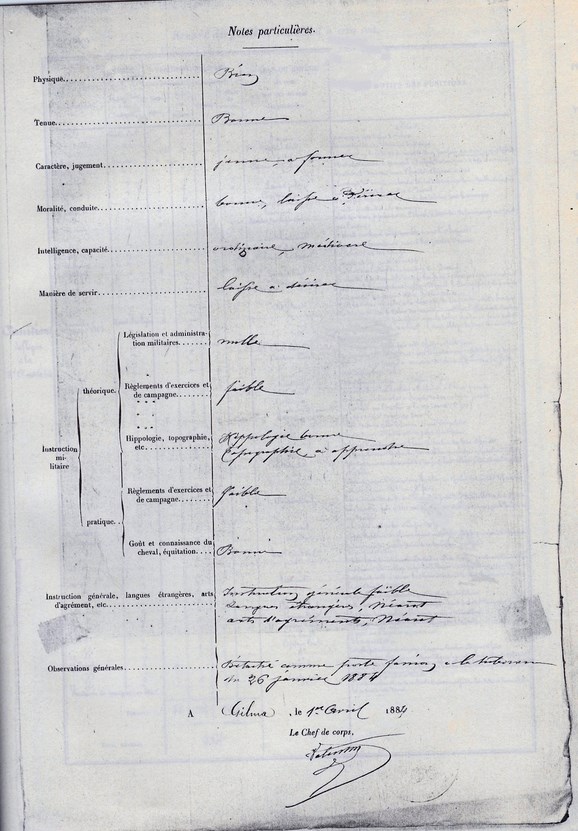 Notes particulières.
Physique.... Bien
Tenue.... Bonne
Caractère, jugement.... jeune, a former
Moralité, conduite.... bonne, laisse a désirer
Intelligence, capacité.... ordinaire, médiocre
Manière de servir.... laisse a désirer
Instruction
mi-
litaire
théorique.
Législation et administra-
tion militaires.... nulle
Règlements d'exercices et
de campagne.... faible
Hippologie, topographie, Hippologie bonne
etc.... Topographie, à apprendre
pratique.
Règlements d'exercices et
de campagne.... faible
Goût et connaissance du
cheval, équitation.... Bonne
Instruction générale, langues étrangères, arts Instruction générale faible
d'agrément, etc.... Langues étrangères, Néant
arts d'agréments, Néant
Observations générales.... Détaché comme porte
du 26 janvier 1884
A Gilma, le 1er Avril 1884
Le Chef de corps,